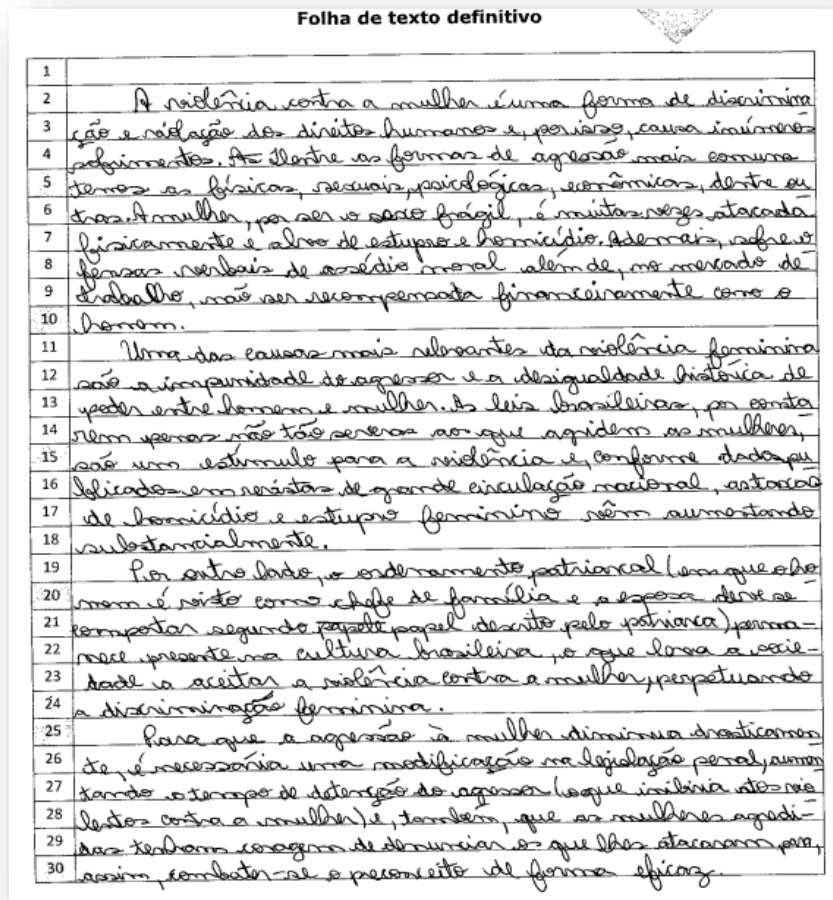 Folha de texto definitivo
1
2 A violência contra a mulher é uma forma de discrimina
3 ção e violação dos direitos humanos e, por isso, causa inúmeros
4 sofrimentos. As Dentre as formas de agressão mais comuns
5 temos as físicas, sexuais, psicológicas, econômicas, dentre ou
6 tras. A mulher, por ser o sexo frágil, é muitas vezes atacada
7 fisicamente e alvo de estupro e homicídio. Ademais, sofre o
8 fensas verbais de assédio moral além de, no mercado de
9 trabalho, não ser recompensada financeiramente como o
10 homem.
11 Uma das causas mais relevantes da violência feminina
12 são a impunidade do agressor e a desigualdade histórica de
13 poder entre homem e mulher. As leis brasileiras, por consta
14 rem penas não tão severas aos que agridem as mulheres,
15 são um estímulo para a violência e, conforme dados pu
16 blicados em revistas de grande circulação nacional, as taxas
17 de homicídio e estupro feminino vêm aumentando
18 substancialmente.
19 Por outro lado, o ordenamento patriarcal (em que o ho
20 mem é visto como chefe de família e a esposa deve se
21 comportar segundo papel descrito pelo patriarca) perma-
22 nece presente na cultura brasileira, o que leva a socie-
23 dade a aceitar a violência contra a mulher, perpetuando
24 a discriminação feminina.
25 Para que a agressão à mulher diminua drasticamen
26 te, é necessária uma modificação na legislação penal, aumen
27 tando o tempo de detenção do agressor (o que inibiria atos vio
28 lentos contra a mulher) e, também, que as mulheres agredi-
29 das tenham coragem de denunciar os que lhes atacaram para,
30 assim, combater-se o preconceito de forma eficaz.